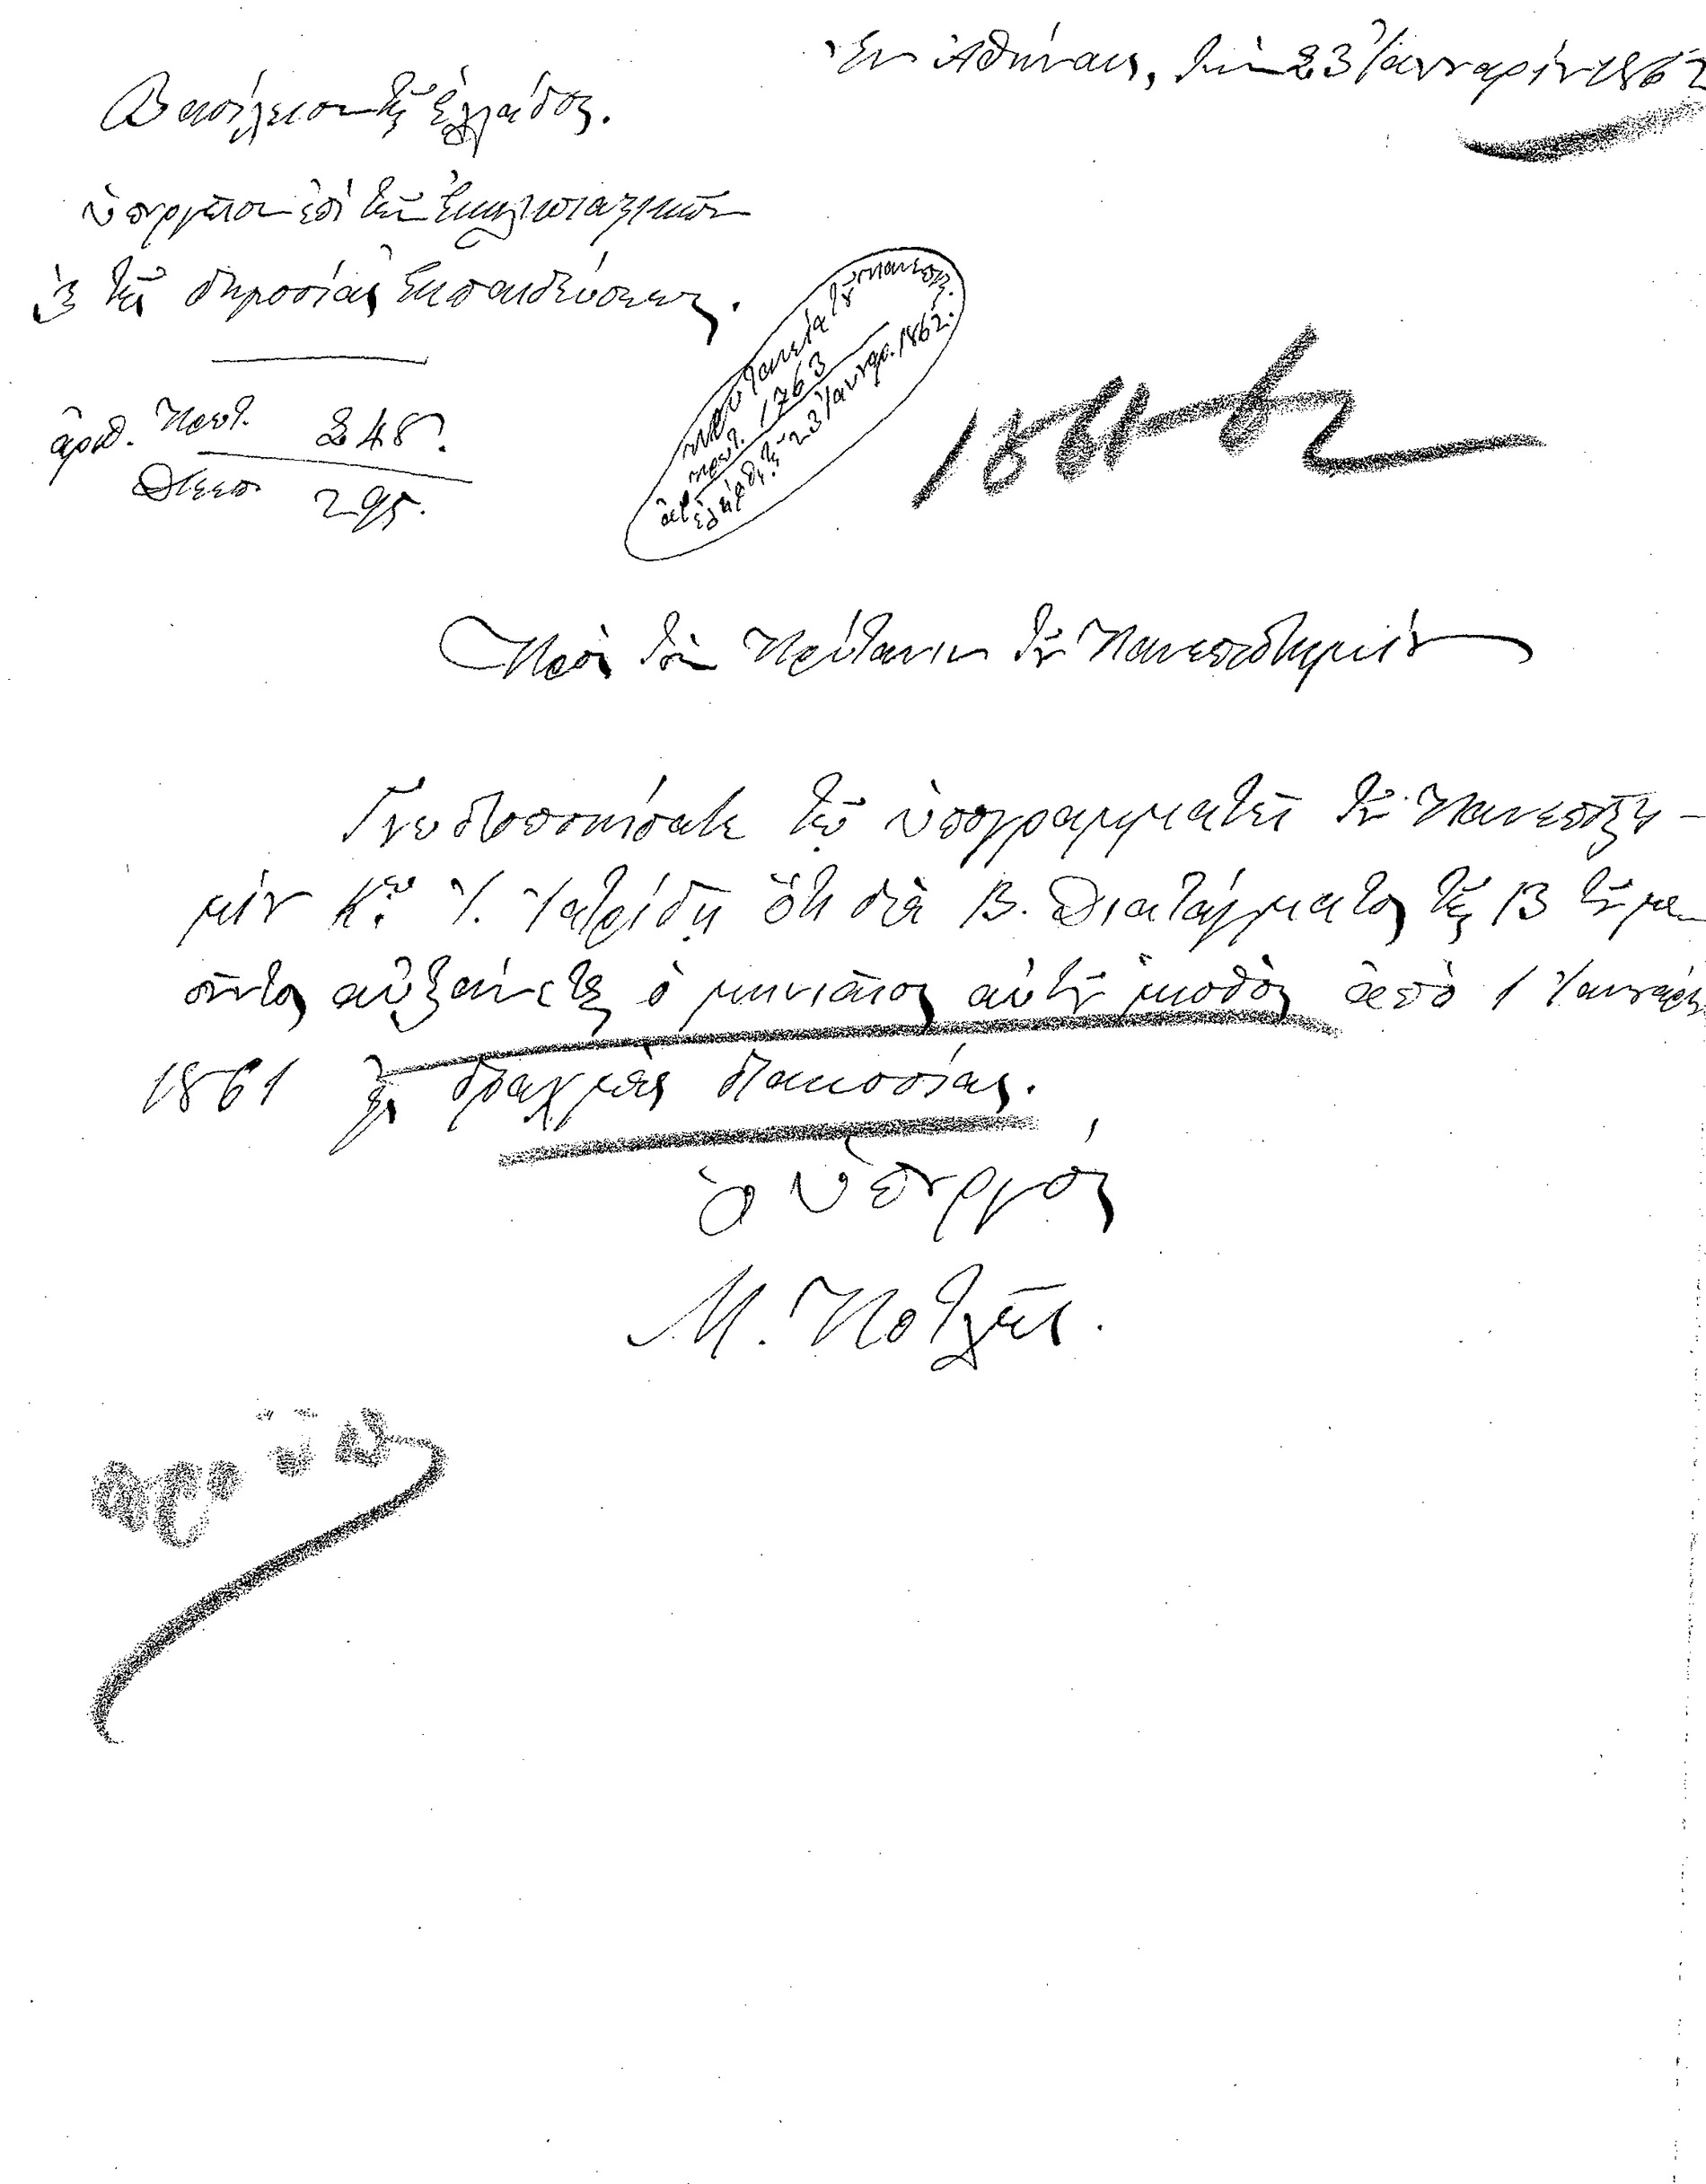 Ἐν Ἀθήναις, τὴν 23 Ἰανουαρίου 1862
Βασίλειον τῆς Ἑλλάδος.
Ὑπουργεῖον ἐπὶ τῶν Ἐκκλησιαστικῶν
καὶ τῆς δημοσίας Ἐκπαιδεύσεως.
ἀριθ. Πρωτ. 248.
Διεκπ. 295.
πρυτανεία τοῦ πανεπιστ.
ἀρ. πρωτ. 1763
ἐλήφθη τῇ 23 Ἰανουαρ. 1862.
1861-62
Πρὸς τὸν Πρύτανιν τοῦ Πανεπιστημίου
Γνωστοποιήσατε τῷ ὑπογραμματεῖ τοῦ Πανεπιστη-
μίου Κῳ Ἰ. Ἰατρίδῃ ὅτι διὰ Β. Διατάγματος τῆς 13 τοῦ πα-
ρόντος αὐξάνεται ὁ μηνιαῖος αὐτοῦ μισθὸς ἀπὸ 1 Ἰανουαρίου
1861 εἰς δραχμὰς διακοσίας.
ὁ Ὑπουργός
Μ. Ποτλῆς.